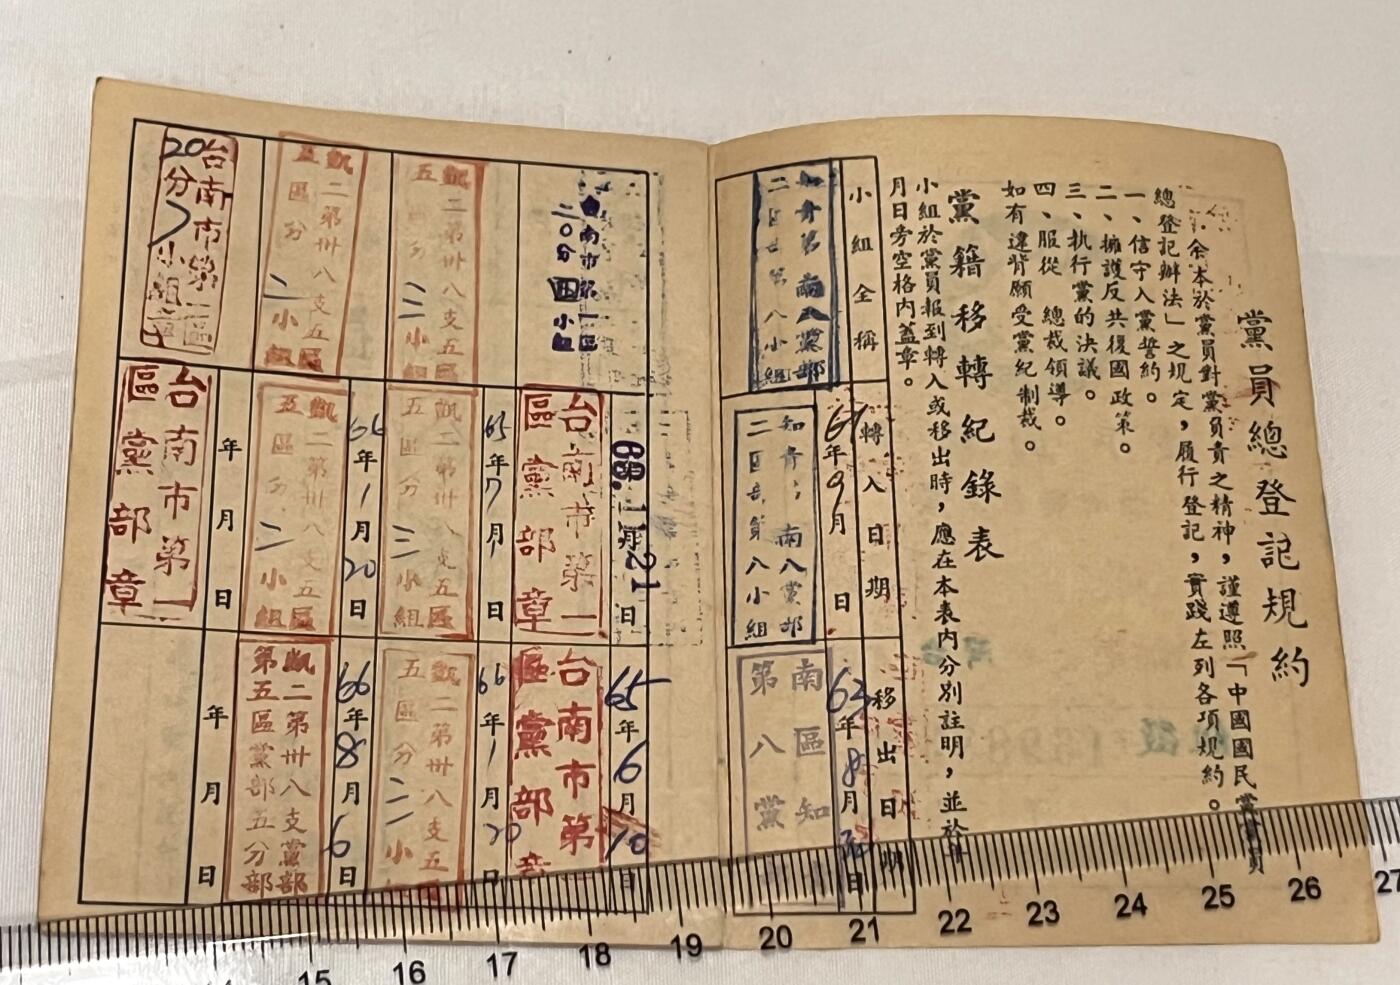 黨員總登記規約
余本於黨員對黨負責之精神，謹遵照「中國國民黨黨員
總登記辦法」之規定，履行登記，實踐左列各項規約。
一、信守入黨誓約。
二、擁護反共復國政策。
三、執行黨的決議。
四、服從　總裁領導。
如有違背願受黨紀制裁。
黨籍移轉紀錄表
小組於黨員報到轉入或移出時，應在本表內分別註明，並於年
月日旁空格內蓋章。
小組全稱
轉入日期
移出日期
南八黨部
二區
第八小組
年9月
日
南八黨部
二區
第八小組
63年8月
日
南區知
第八黨
台南市第一區
二〇分四小組
68.1月21日
65年6月10日
台南市第一
區黨部章
台南市第
區黨部章
凱二第卅八支五區
五區分二小組
65年7月1日
凱二第卅八支五區
五區分三小組
66年1月20日
凱二第卅八支五
五區分二小
凱二第卅八支五區
五區分二小組
66年1月20日
凱二第卅八支五區
五區分二小組
66年8月6日
凱二第卅八支黨部
第五區黨部五分部
台南市第一區
20分
小組章
年月日
台南市第一
區黨部章
年月日
15
16
17
18
19
20
21
22
23
24
25
26
27